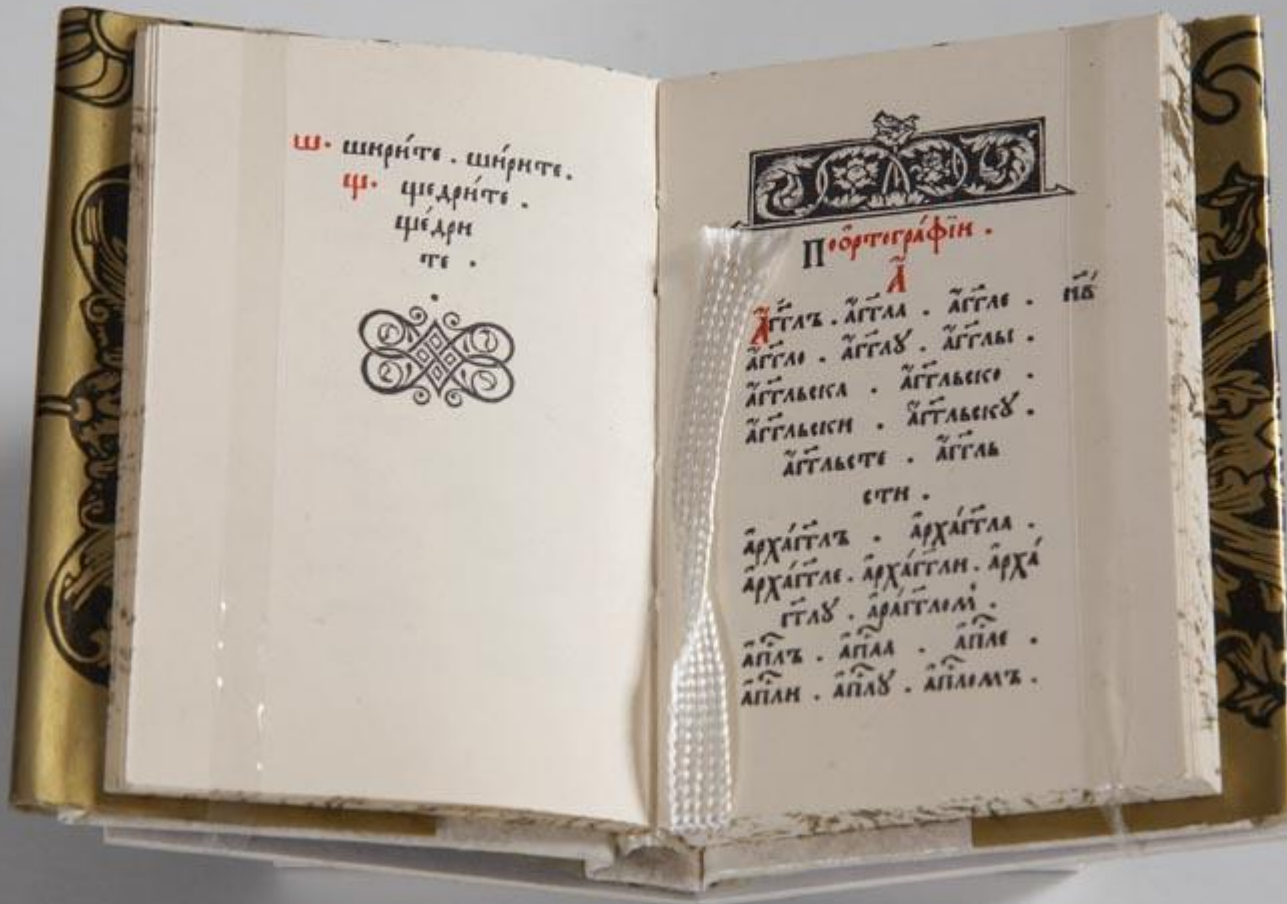 ш· шири́те . ши́рите .
щ· щедри́те .
ще́дри
те .
По ѻ҆ртогра́фїи .
А҃
А҆́гг҃лъ . а҆́гг҃ла . а҆́гг҃ле . м҃в
а҆́гг҃ло . а҆́гг҃лꙋ . а҆́гг҃лы .
а҆́гг҃льска . а҆́гг҃льско .
а҆́гг҃льски . а҆́гг҃льскꙋ .
а҆́гг҃льсте . а҆́гг҃ль
сти .
а҆рха́гг҃лъ . а҆рха́гг҃ла .
а҆рха́гг҃ле . а҆рха́гг҃ли . а҆рха́
гг҃лꙋ . а҆ра́гг҃лом .
а҆п҃лъ . а҆п҃ла . а҆п҃ле .
а҆п҃ли . а҆п҃лꙋ . а҆п҃ломъ .